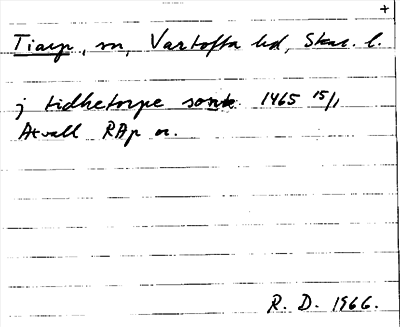 +
Tiarp, sn, Vartofta hd, Skar. l.
j tidhetorpe sonk 1465 15/1
Atvall RAp or.
R. D. 1966.